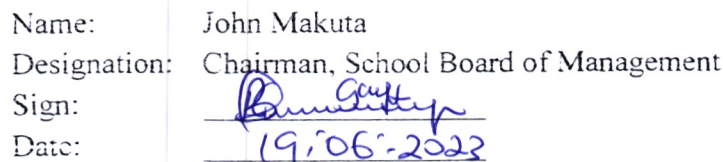 Name: John Makuta
Designation: Chairman, School Board of Management
Sign:
Date: 19:06:-2023